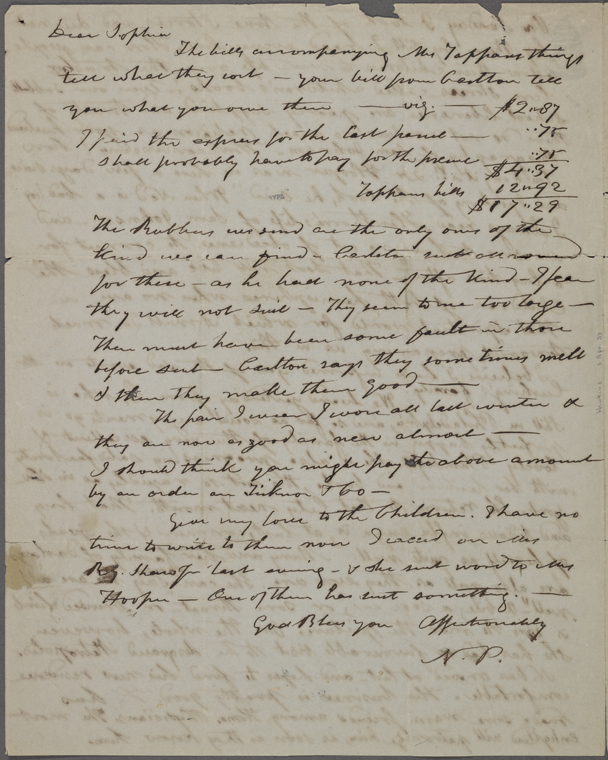 Dear Sophia
The bills accompanying Mrs Tappans things
tell what they cost – your bill from Carlton tell
you what you owe them — viz. — $2.87
I paid the express for the last parcel — ..75
shall probably have to pay for the present ..75
$4.37
Tappans bills 12.92
$17.29
The Rubbers we send are the only ones of the
kind we can find – Carlton sent all round
for these – as he had none of the kind – I fear
they will not suit – They seem to me too large –
There must have been some fault in those
before sent – Carlton says they sometimes melt
& then they make them good —
The pair I wear I wore all last winter &
they are now as good as new almost —
I should think you might pay the above amount
by an order on Ticknor & Co –
Give my love to the Children. I have no
time to write to them now I called on Mrs
R.G. Shaw Jr last evening – & she sent word to Mrs
Hooper – One of them has sent something. —
God Bless you Affectionately
N. P.